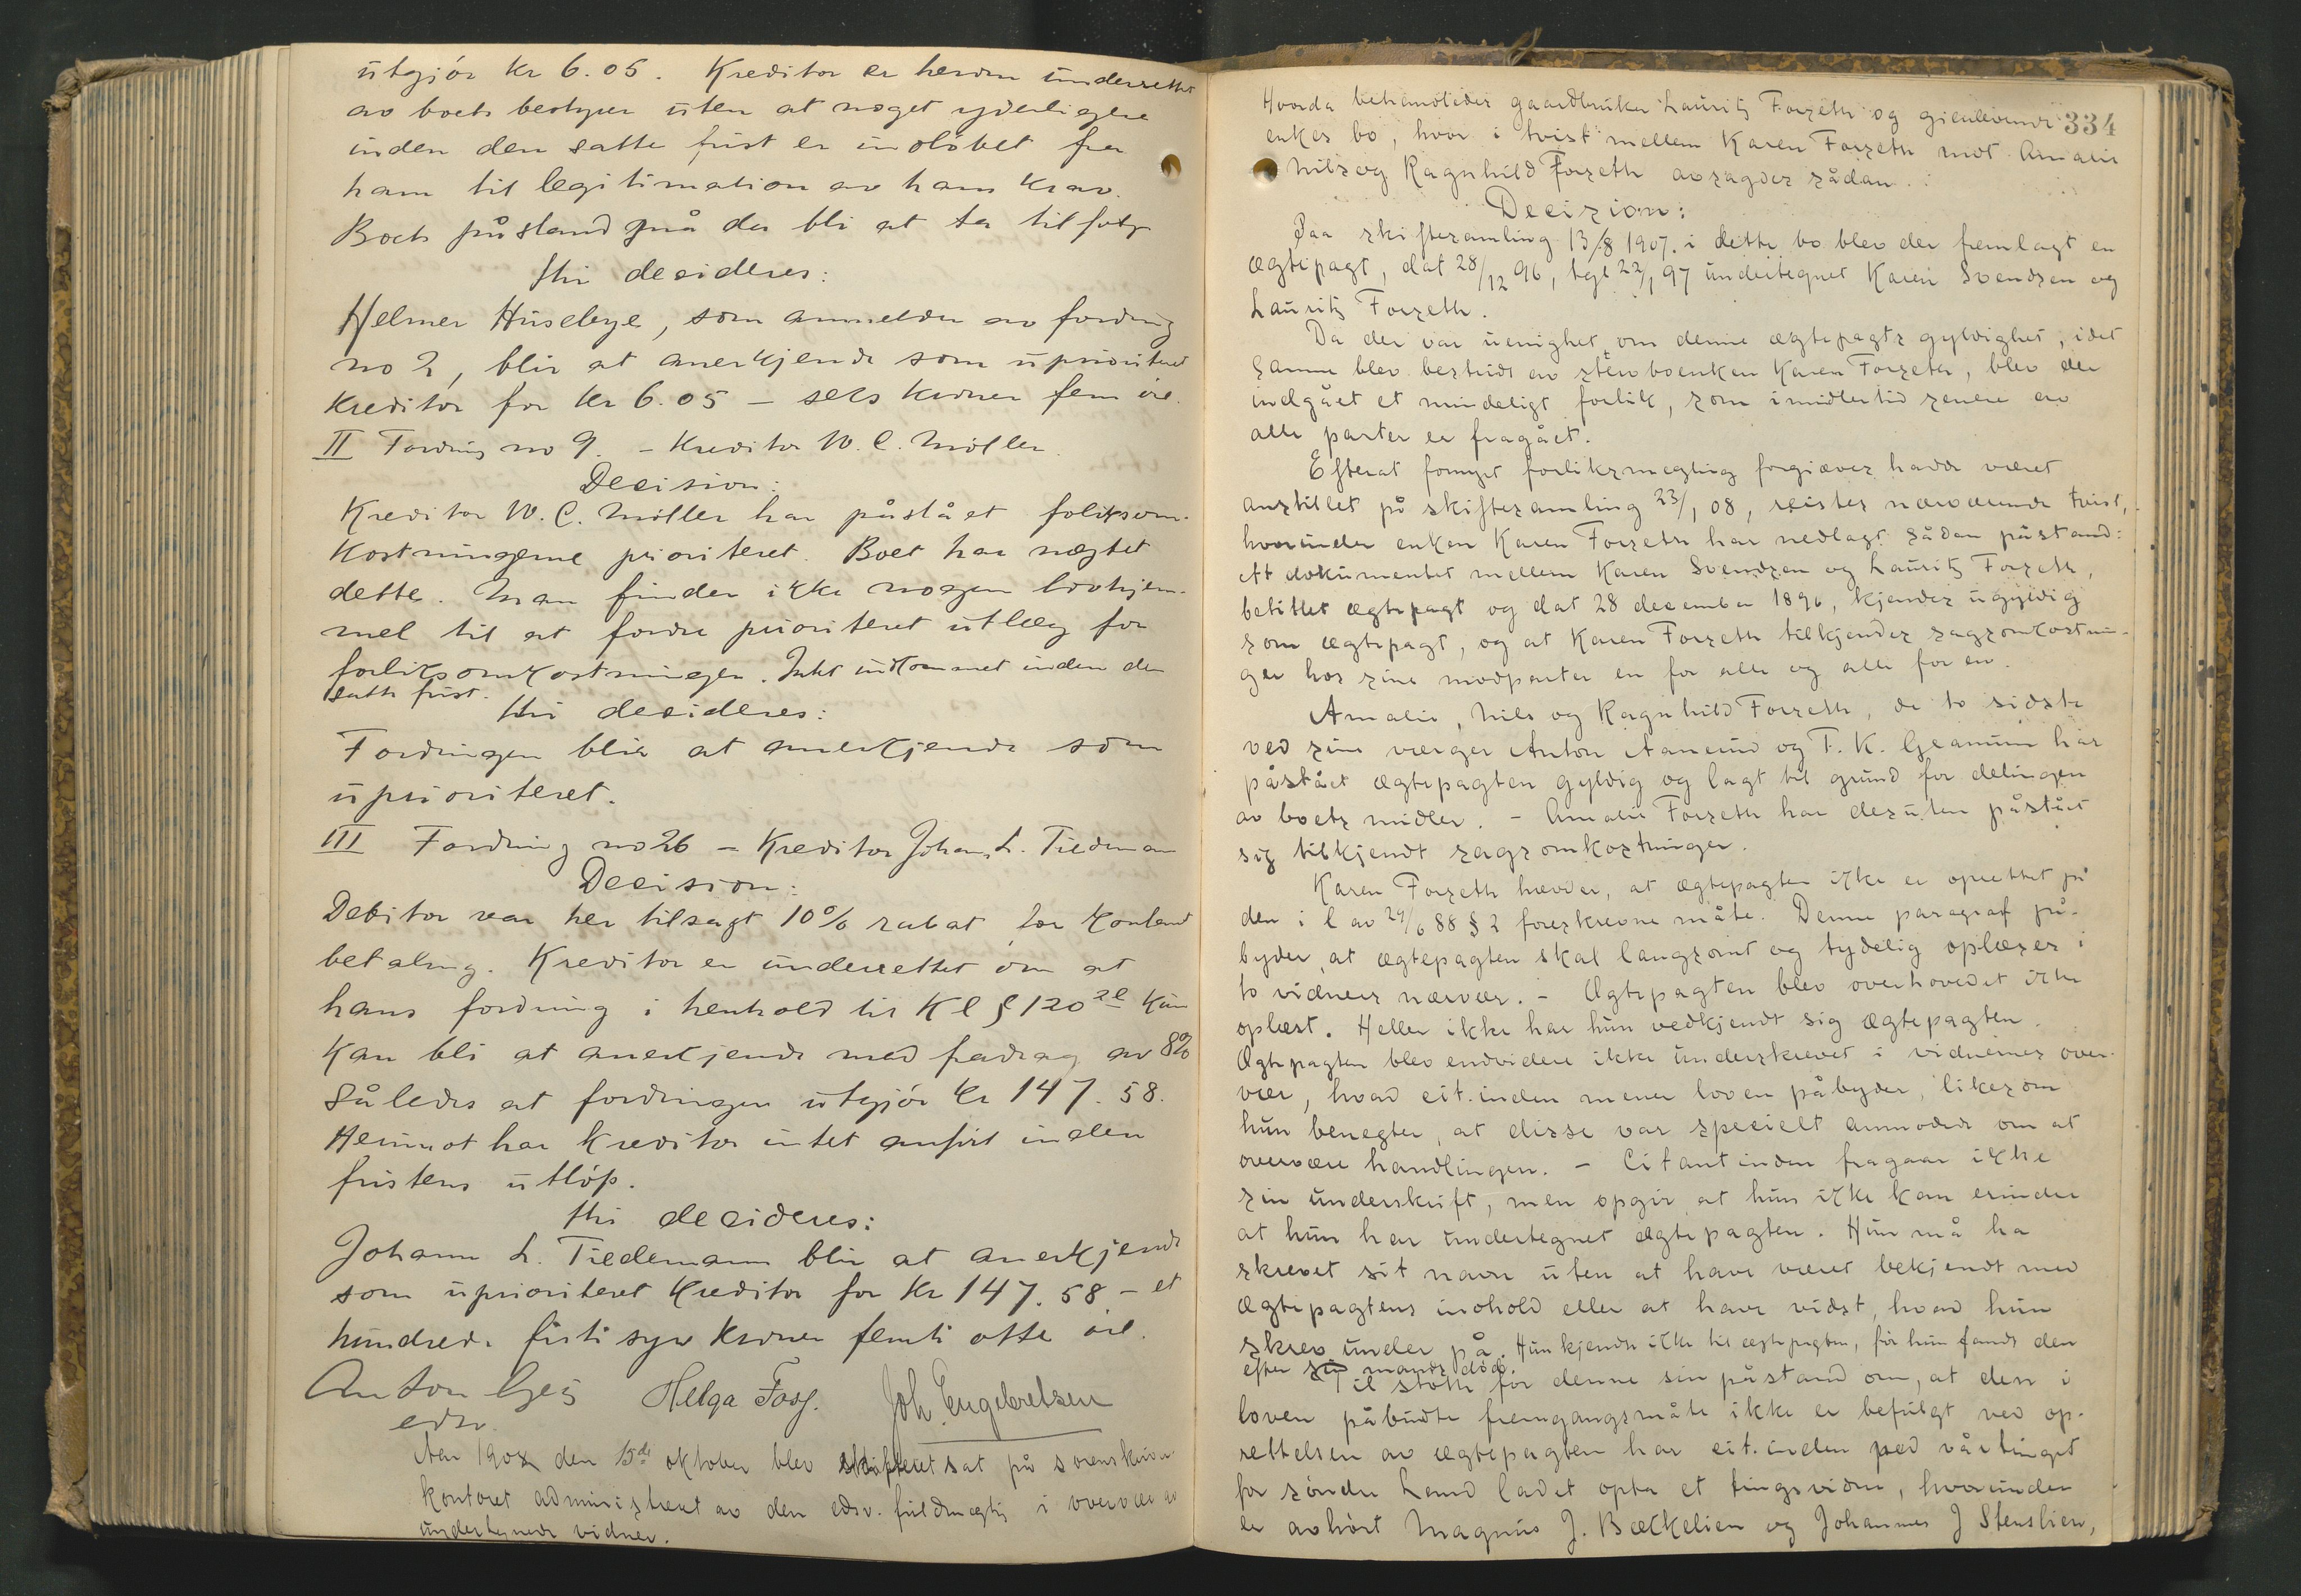 utgjør kr 6.05. Kreditor er herom underrettet
av boets bestyrer uten at noget yderligere
inden den satte frist er indløbet fra
ham til legitimation av hans krav.
Boets påstand må da bli at ta tilfølge
thi decideres:
Helmer Husebye, som anmelder av fordring
no 2, blir at anerkjende som uprioritert
kreditor for kr 6.05 – seks kroner fem øre.
II Fordring no 9. – Kreditor W. C. Møller.
Decision:
Kreditor W. C. Møller har påstået forliksom-
kostningerne prioriteret. Boet har nægtet
dette. Man finder ikke nogen lovhjem-
mel til at fordre prioriteret utlæg for
forliksomkostninger. Intet indkommet inden den
satte frist.
thi decideres:
Fordringen blir at anerkjende som
uprioriteret.
III Fordring no 26 – Kreditor Johan L. Tiedeman
Decision:
Debitor var her tilsagt 10% rabat for kontant
betaling. Kreditor er underrettet om at
hans fordring i henhold til Kl § 120 2l kun
kan bli at anerkjende med fradrag av 8%
Således at fordringen utgjør kr 147.58.
Herimot har kreditor intet anført inden
fristens utløp.
thi decideres:
Johann L. Tiedemann blir at anerkjende
som uprioriteret kreditor for kr 147.58 – et
hundrede førti syv kroner femti otte øre.
Anton Helga Joh. Engebretsen
edsv.
Aar 1908 den 15de oktober blev skifteret sat på sorenskriver
kontoret administrert av den edsv. fuldmægtig i overvær av
undertegnede vidner.
334
Hvorda behandledes gaardbruker Lauritz Forseth og gjenlevende
enkes bo, hvor i tvist mellem Karen Forseth mot Amalie
Nils og Ragnhild Forseth avsagdes sådan
Decision:
Paa skiftesamling 13/8 1907. i dette bo blev der fremlagt en
ægtepagt, dat 28/12 96, tgl 22/1 97 undertegnet Karen Svendsen og
Lauritz Forseth.
Da der var uenighet om denne ægtepagts gyldighet, idet
samme blev bestridt av stervboenken Karen Forseth, blev der
indgået et mindeligt forlik, som imidlertid senere av
alle parter er fragået.
Efterat fornyet forliksmegling forgjæves hadde været
anstillet på skiftesamling 23/1 08, reistes nærværende tvist,
hvorunder enken Karen Forseth har nedlagt sådan påstand:
At dokumentet mellem Karen Svendsen og Lauritz Forseth,
betitlet ægtepagt og dat 28 december 1896, kjendes ugyldig
som ægtepagt, og at Karen Forseth tilkjendes sagsomkostnin-
ger hos sine modparter en for alle og alle for en.
Amalie, Nils og Ragnhild Forseth, de to sidste
ved sine verger Anton Aanerud og T. K. har
påstået ægtepagten gyldig og lagt til grund for delingen
av boets midler. – Amalie Forseth har desuten påstået
sig tilkjendt sagsomkostninger.
Karen Forseth hævder, at ægtepagten ikke er oprettet på
den i l av 29/6 88 § 2 foreskrevne måte. Denne paragraf på-
byder, at ægtepagten skal langsomt og tydelig oplæses i
to vidners nærvær. – Ægtepagten blev overhovedet ikke
oplæst. Heller ikke har hun vedkjendt sig ægtepagten.
Ægtepagten blev endvidere ikke underskrevet i vidnernes over-
vær, hvad cit.inden mener loven påbyder, likesom
hun benegter, at disse var specielt anmodede om at
overvære handlingen. – Citantinden fragaar ikke
sin underskrift, men opgir at hun ikke kan erindre
at hun har undertegnet ægtepagten. Hun må ha
skrevet sit navn uten at have været bekjendt med
Ægtepagtens indhold eller at have vidst, hvad hun
skrev under på. Hun kjendte ikke til ægtepagten, før hun fandt den
efter sin mands død.
Til støtte for denne sin påstand om, at den i
loven påbudte fremgangsmåte ikke er befulgt ved op-
rettelsen av ægtepagten har cit.inden ved vårtinget
for søndre Land ladet opta et tingsvidne, hvorunder
er avhørt Magnus J. Bækkelien og Johannes J Stenslien,